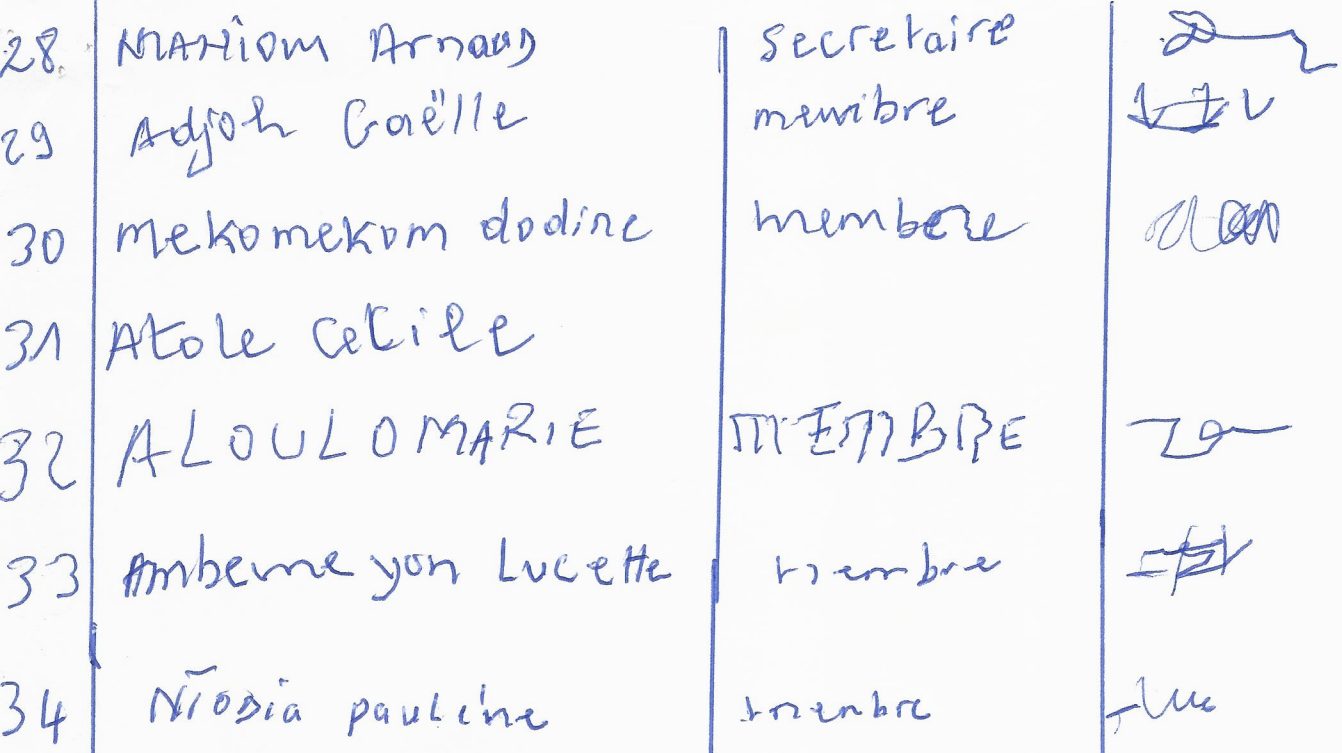 28 MAHIOM Arnaud secretaire
29 Adjoh Gaëlle membre
30 mekomekom dodine membere
31 Atole Cecile
32 ALOULO MARIE MEMBRE
33 Ambeme yon Lucette membre
34 pauline membre